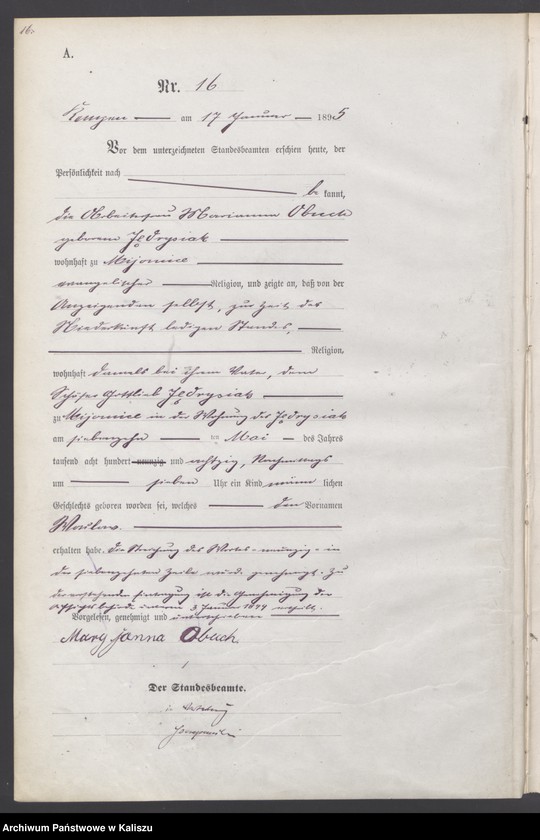 16.
A.
Nr. 16
Kempen am 17 Januar 1895
Vor dem unterzeichneten Standesbeamten erschien heute, der
Persönlichkeit nach
be kannt,
die Arbeiterfrau Marianna Obuch
geborene Jędrysiak
wohnhaft zu Mijomice
evangelischer Religion, und zeigte an, daß von der
Anzeigenden selbst, zur Zeit der
Niederkunft ledigen Standes,
Religion,
wohnhaft damals bei ihrem Vater, dem
Schäfer Gottlieb Jędrysiak
zu Mijomice in der Wohnung des Jędrysiak
am siebenzehn ten Mai des Jahres
tausend acht hundert neunzig und achtzig, Nachmittags
um sieben Uhr ein Kind männ lichen
Geschlechts geboren worden sei, welches den Vornamen
erhalten habe. Die Streichung des Wortes - neunzig - in
der siebenzehnten Zeile wird genehmigt. Zu
der vorstehenden Eintragung ist die Genehmigung der
Aufsichtsbehörde 3 Januar ertheilt.
Vorgelesen, genehmigt und unterschrieben
Maryjanna Obuch
Der Standesbeamte.
Archiwum Państwowe w Kaliszu